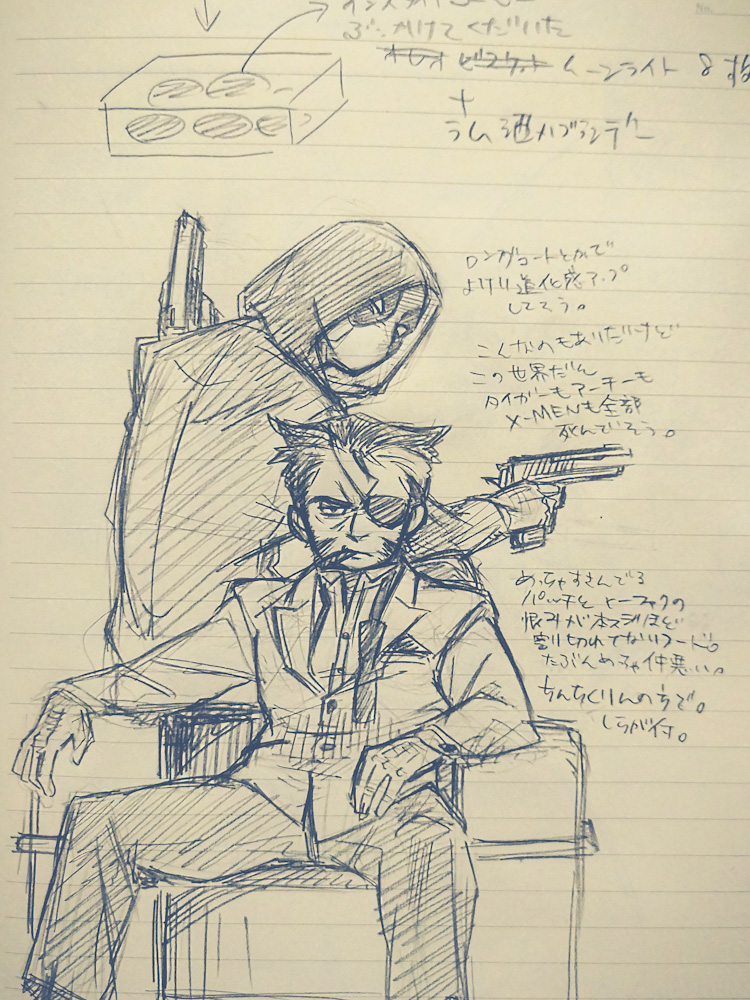 ぶっかけてくだいた
オレオ ビスケット ムーンライト 8枚
+
ラム酒 ハブランデー
ロングコートとかで
よけい進化感アップ
してそう。
こんなのもありだけど
この世界だと
タイガーもアーチーも
X-MENも全部
死んでいそう。
めっちゃすさんでる
パッチと ヒーフォクの
恨みが本スジほど
割り切れてないフード。
たぶんめっちゃ仲悪い。
ちんちくりんの方で。
しらが付。